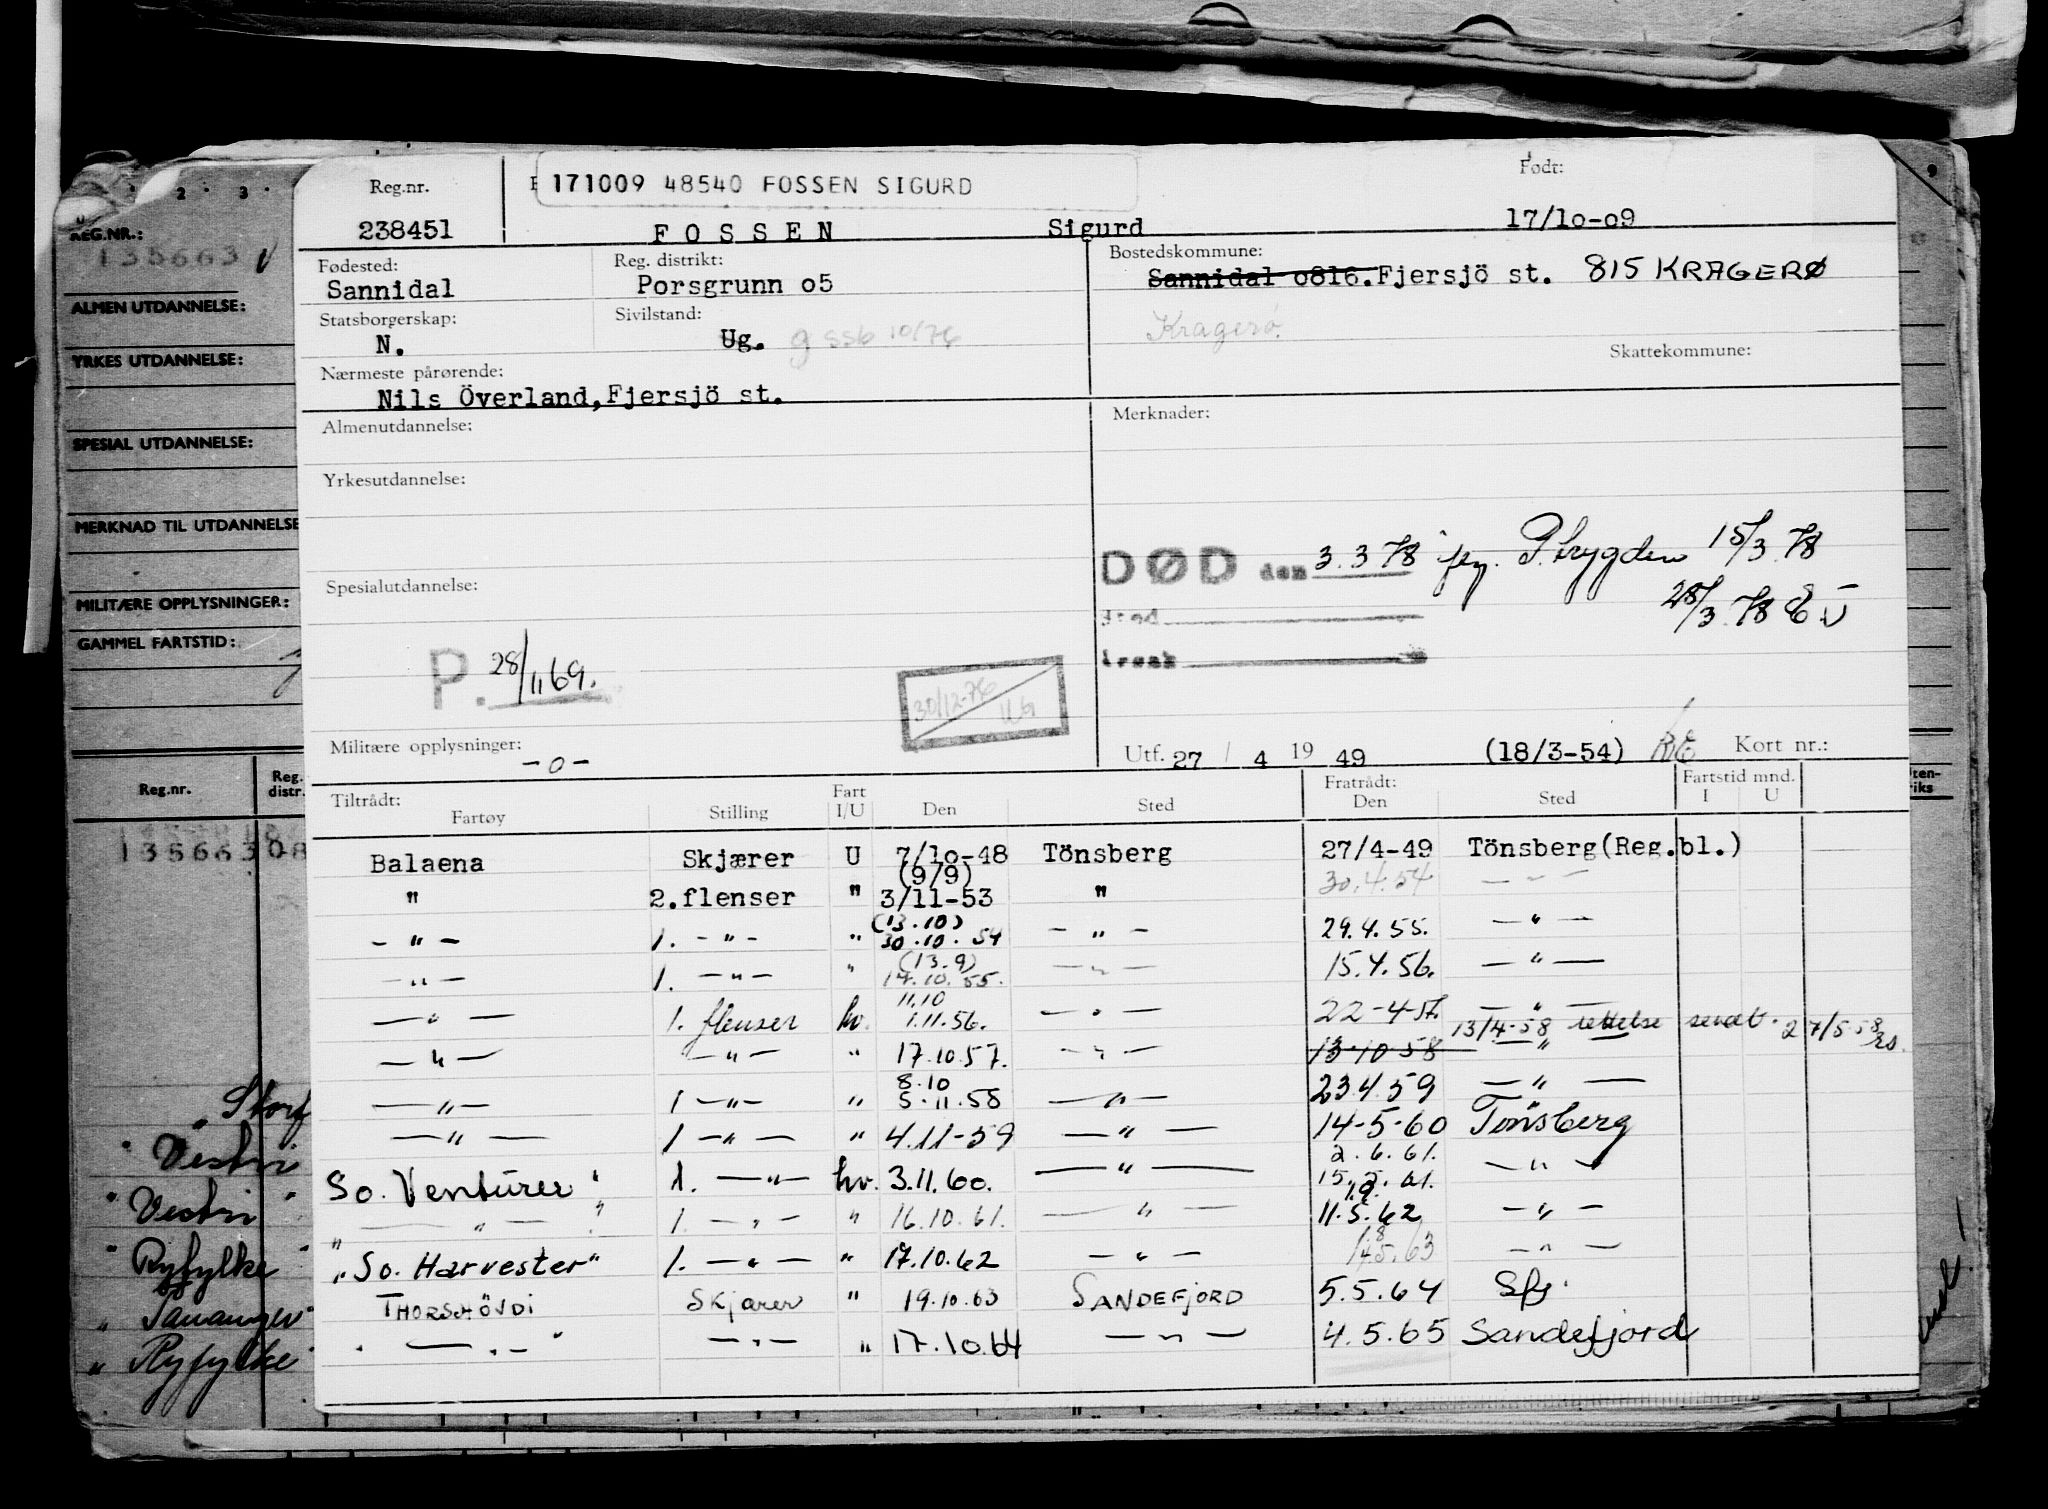 Reg.nr.
171009 48540 FOSSEN SIGURD
Født:
238451 FOSSEN Sigurd 17/1o-o9
Fødested: Reg. distrikt: Bostedskommune:
Sannidal Porsgrunn o5 Sannidal o816. Fjersjö st. 815 KRAGERØ
Statsborgerskap: Sivilstand: Kragerø.
N. Ug. g ssb 10/76
Skattekommune:
Nærmeste pårørende:
Nils Överland, Fjersjö st.
Almenutdannelse: Merknader:
Yrkesutdannelse:
DØD den 3.3.78 P.trygden 15/3.78
28/3.78
Spesialutdannelse:
P. 28/11 69.
30/12-76
Militære opplysninger: -o-
Utf. 27 / 4 19 49 (18/3-54) Kort nr.:
Tiltrådt: Fratrådt: Fartstid mnd.
Fartøy Stilling Fart I/U Den Sted Den Sted I U
Balaena Skjærer U 7/1o-48 Tönsberg 27/4-49 Tönsberg(Reg.bl.)
(9/9)
" 2.flenser " 3/11-53 " 30.4.54 - " -
(13.10)
- " - 1. - " - " 30.10.54 - " - 29.4.55. - " -
(13.9)
- " - 1. - " - " 14.10.55. - " - 15.4.56. - " -
11.10
- " - 1. flenser hv. 1.11.56. - " - 22-4-57. - " -
13/4-58 rettelse sendt. 27/5 58
- " - - " - " 17.10.57. - " - 13.10.58 - " -
8.10
- " - 1 - " - " 5.11.58 - " - 23.4.59 - " -
- " - 1 - " - " 4.11-59 - " - 14-5-60 Tönsberg
2.6.61.
So. Venturer " 1. - " - hv. 3.11.60. - " - 15.5.61. - " -
" - " - " 1. - " - " 16.10.61. - " - 11.5.62 - " -
"So. Harvester" 1. - " - " 17.10.62 - " - 14.5.63 - " -
THORSHÖVDI Skjærer " 19.10.63 SANDEFJORD 5.5.64 Sfj.
- " - - " - " 17.10.64 - " - 4.5.65 Sandefjord
2 . 3 .
REG.NR.:
135663
ALMEN UTDANNELSE:
YRKES UTDANNELSE:
SPESIAL UTDANNELSE:
MERKNAD TIL UTDANNELSE
MILITÆRE OPPLYSNINGER:
GAMMEL FARTSTID:
Reg.nr. Reg. distr.
135663 08
" Vestri
" Vestri "
" Ryfylke "
" Ryfylke "